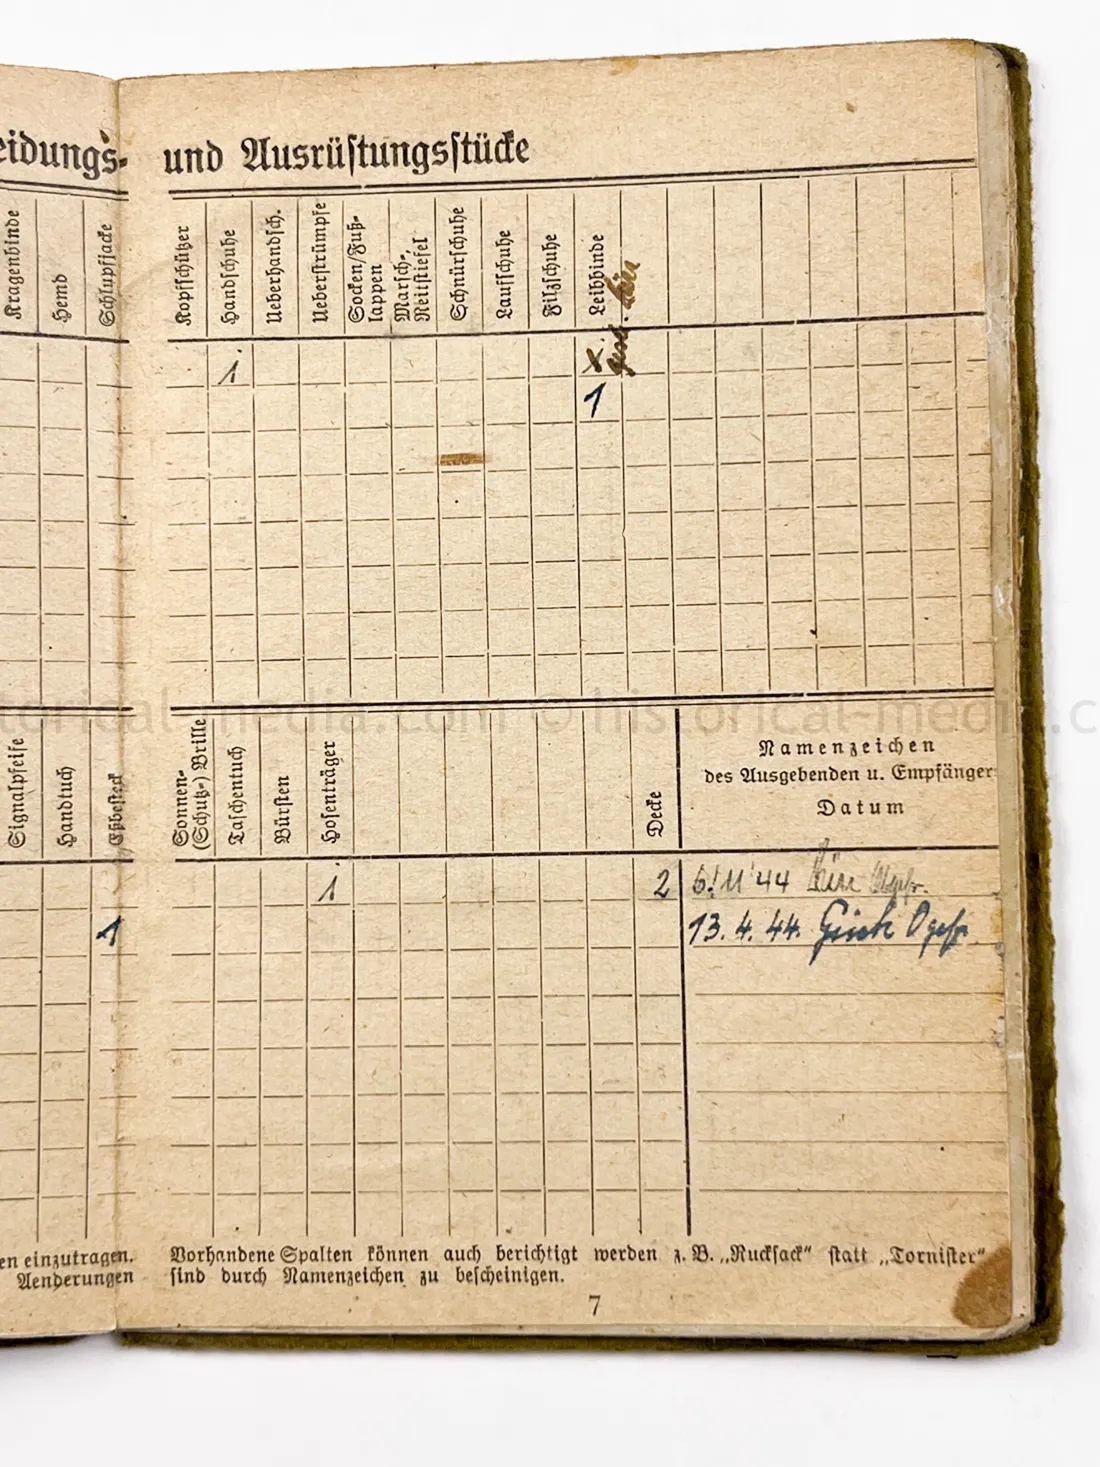 eidungs- und Ausrüstungsstücke
Kragenbinde
Hemd
Schlupfjacke
Kopfschützer
Handschuhe
Ueberhandsch.
Ueberstrümpfe
Socken/Fuß-
lappen
Marsch-,
Reitstiefel
Schnürschuhe
Laufschuhe
Filzschuhe
Leibbinde
1 x
1
Signalpfeife
Handtuch
Eßbesteck
Sonnen-
(Schutz-) Brille
Taschentuch
Bürsten
Hosenträger
Decke
Namenzeichen
des Ausgebenden u. Empfänger
Datum
1 2 6.11.44
1 13.4.44. Ogefr.
en einzutragen.
Aenderungen
Vorhandene Spalten können auch berichtigt werden z. B. „Rucksack" statt „Tornister"
sind durch Namenzeichen zu bescheinigen.
7
torical-media.com © historical-media.c